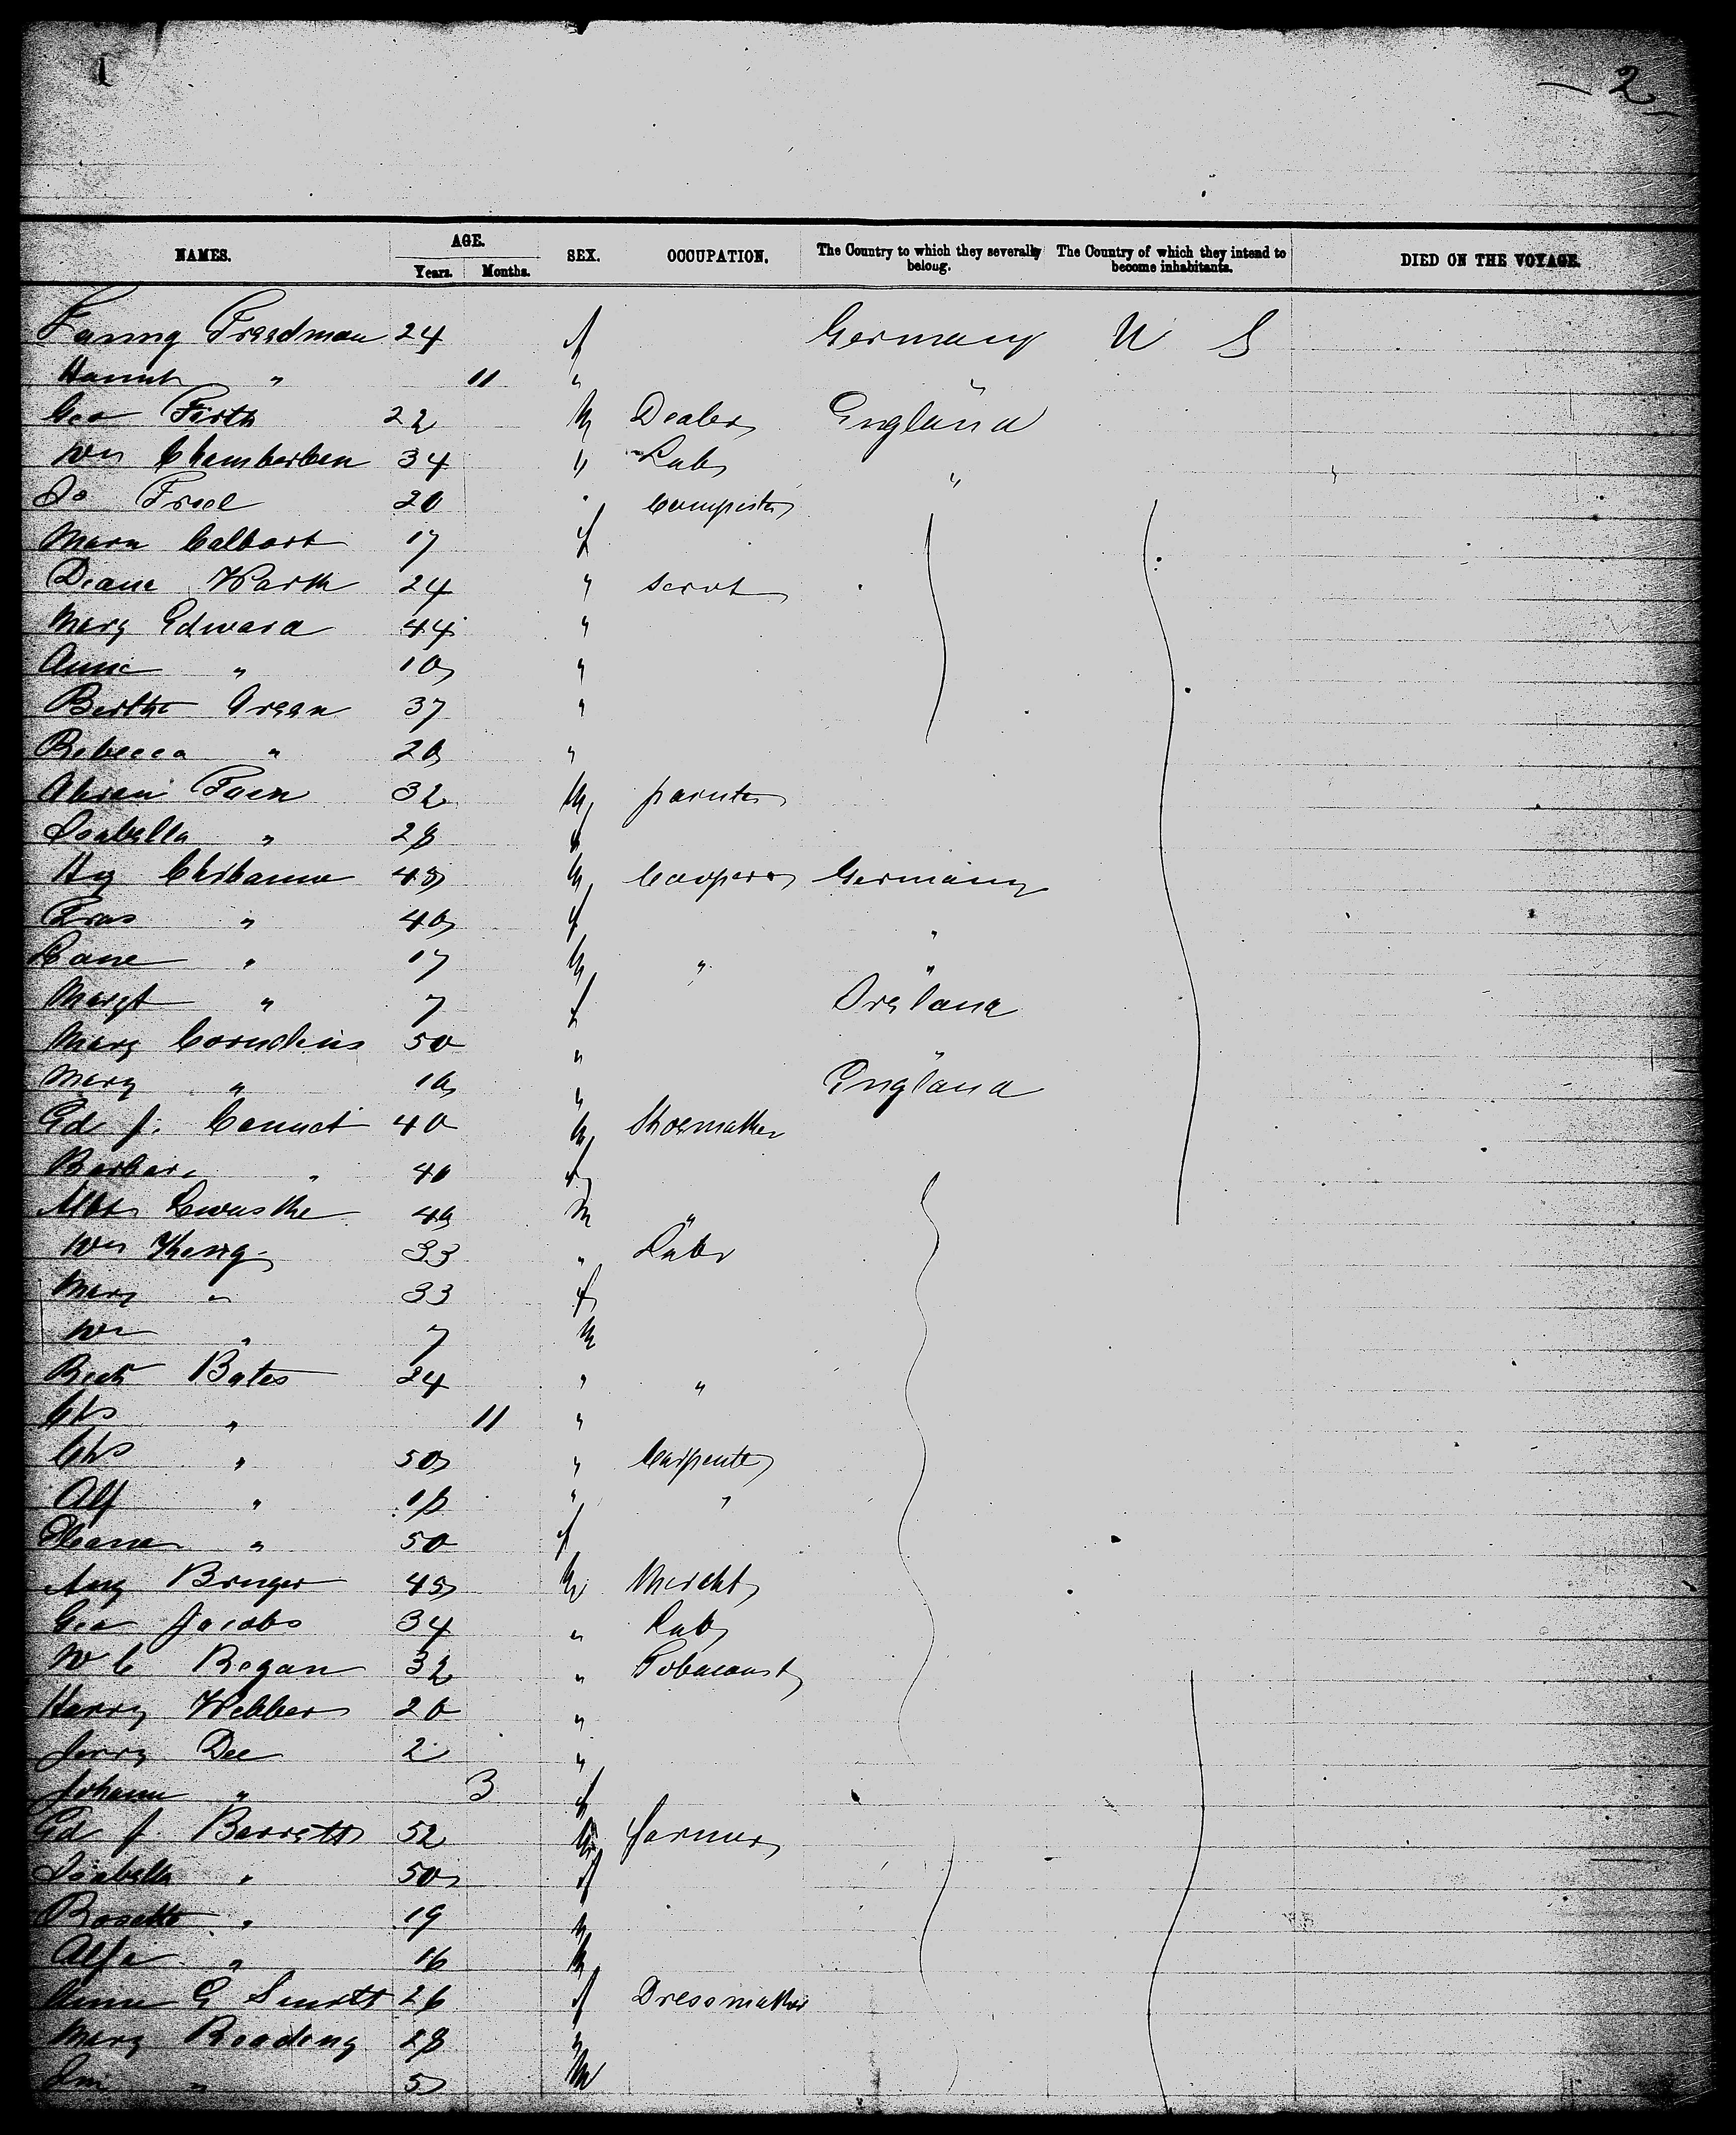 1
2
NAMES. AGE. SEX. OCCUPATION. The Country to which they severally belong. The Country of which they intend to become inhabitants. DIED ON THE VOYAGE.
Years. Months.
Fanny Freedman 24 f Germany U S
Hannah " 11 " "
Geo Firth 22 M Dealer England
Wm Chamberlen 34 " Labr "
Jo Freel 20 "
Mara Calbert 17 f
Diana Warth 24 " servt
Mary Edward 44 "
Anne " 10 "
Bertha Green 37 "
Rebecca " 20 "
Abram Foen 32 M painter
Isabella " 28 f
Hy 45 M Cooper Germany
Fras " 40 f "
" 17 M " "
Margt " 7 f Ireland
Mary Cornelius 50 " "
Mary " 10 " England
Ed J. 40 M Shoemaker
Barbara " 40 f
40 M "
Wm 33 " Labr
Mary " 33 f
Wm " 7 M
Richd Bates 24 " "
Chs " 11 "
Chs " 50 " Carpenter
Alf " 18 " "
" 50 f
Aug Bruger 45 M Mercht
Geo Jacobs 34 " Labr
W C Regan 32 " Tobaconist
Harry Webber 20 "
Jerry Dee 2 "
Johann " 3 f
Ed J Barrett 52 M farmer
Isabella " 50 f
Rosetta " 19
Alfd " 16 M
Anna G 26 f Dressmaker
Mary Reading 28 "
Jm " 5 M